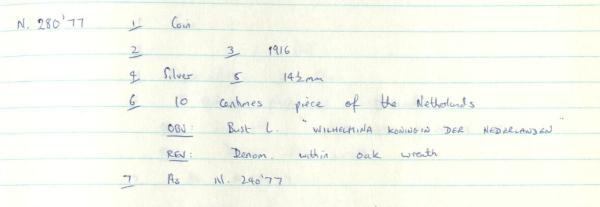 N. 280'77 1 Coin
2 3 1916
4 Silver 5 14½mm
6 10 Centimes piece of the Netherlands
OBV: Bust L. "WILHELMINA KONINGIN DER NEDERLANDEN"
REV: Denom. within oak wreath
7 As N. 240'77